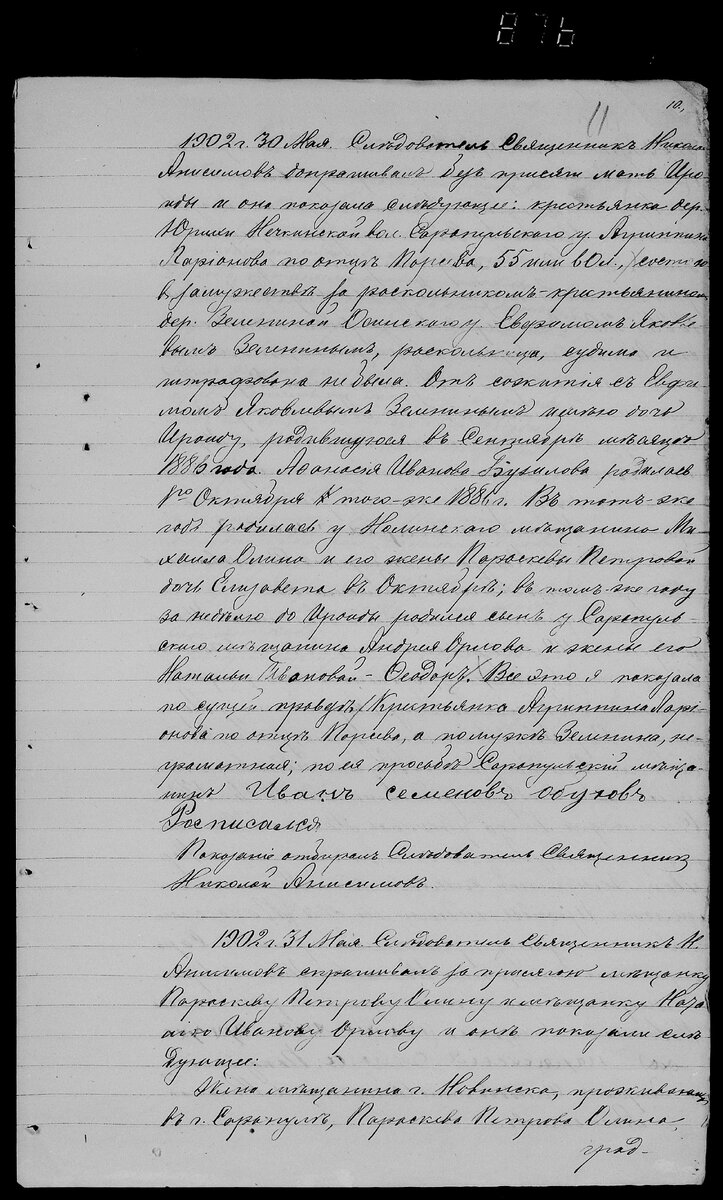 876
10.
11
1902 г. 30 Мая. Слѣдователь Священникъ Николай
Анисимовъ допрашивалъ безъ присяги мать Ирои
ды и она показала слѣдующее: крестьянка дер.
Юрихи Нечкинской вол. Сарапульскаго у. Агриппина
Ларіонова по отцѣ Порсева, 55 или 60 л., состою
въ замужествѣ за раскольникомъ-крестьяниномъ
дер. Зелениной Осинскаго у. Евфимомъ Яковле
вымъ Зеленинымъ, раскольница, судима и
штрафована не была. Отъ сожитія съ Евфи
момъ Яковлевымъ Зеленинымъ имѣю дочь
Ироиду, родившуюся въ Сентябрѣ мѣсяцѣ
1886 года. Афанасія Иванова родилась
1го Октября того-же 1886 г. Въ тотъ-же
годъ родилась у Нолинскаго мѣщанина Ми
хаила Олина и его жены Параскевы Петровой
дочь Елизавета въ Октябрѣ; въ томъ-же году
за недѣлю до Ироиды родился сынъ у Сарапуль-
скаго мѣщанина Андрея Орлова и жены его
Натальи Ивановой - Ѳеодоръ. Все это я показала
по сущей правдѣ. Крестьянка Агриппина Ларі-
онова по отцѣ Порсева, а по мужѣ Зеленина, не-
грамотная; по ея просьбѣ Сарапульскій мѣща-
нинъ Иванъ семеновъ обуховъ
Росписался
Показаніе отбиралъ Слѣдователь Священникъ
Николай Анисимовъ.
1902 г. 31 Мая. Слѣдователь Священникъ Н.
Анисимовъ спрашивалъ за присягою мѣщанку
Параскеву Петрову Олину и мѣщанку Ната
лью Иванову Орлову и онѣ показали слѣ
дующее:
Жена мѣщанина г. Нолинска, проживающая
въ г. Сарапулѣ, Параскева Петрова Олина,
град-